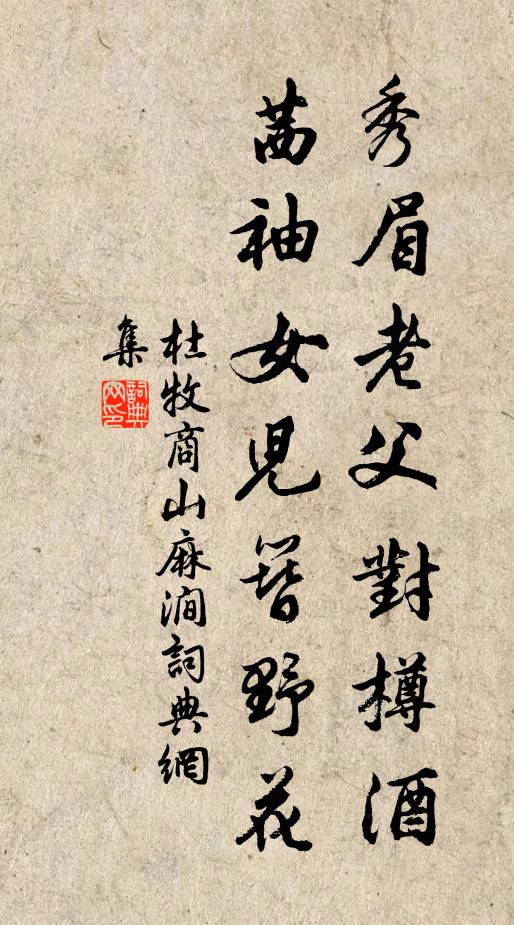 秀眉老父對樽酒
茜袖女兒簪野花
杜牧商山麻澗詞典網
集
詞典
网印